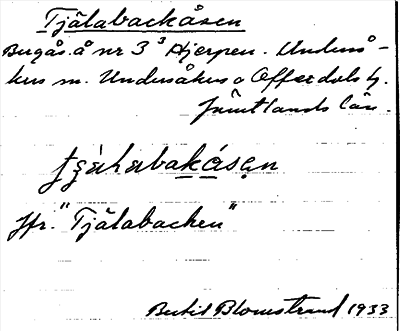 Tjälabackåsen
Bergås å nr 3³ Hjerpen. Underså-
kers sn. Undersåkers o Offerdals tg.
Jämtlands län.
Jfr. "Tjälabacken"
Bertil Blomstrand 1933